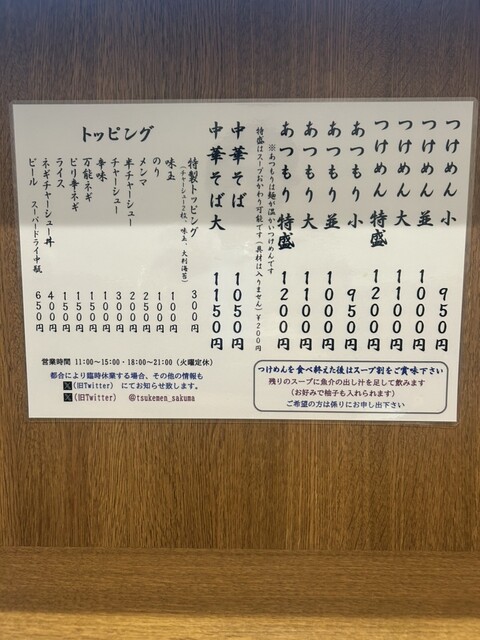 つけめん 小 950円
つけめん 並 1000円
つけめん 大 1100円
つけめん 特盛 1200円
あつもり 小 950円
あつもり 並 1000円
あつもり 大 1100円
あつもり 特盛 1200円
※あつもりは麺が温かいつけめんです
特盛はスープおかわり可能です(具材は入りません)¥200円
中華そば 1050円
中華そば 大 1150円
トッピング
特製トッピング 300円
(チャーシュー2枚、味玉、大判海苔)
味玉 100円
のり 100円
メンマ 250円
半チャーシュー 200円
チャーシュー 300円
辛味 100円
万能ネギ 150円
ピリ辛ネギ 150円
ライス 150円
ネギチャーシュー丼 400円
ビール スーパードライ中瓶 650円
営業時間 11:00〜15:00・18:00〜21:00 (火曜定休)
都合により臨時休業する場合、その他の情報も
X(旧Twitter) にてお知らせ致します。
X(旧Twitter) @tsukemen_sakuma
つけめんを食べ終えた後はスープ割をご賞味下さい
残りのスープに魚介の出し汁を足して飲みます
(お好みで柚子も入れられます)
ご希望の方は係りにお申し出下さい